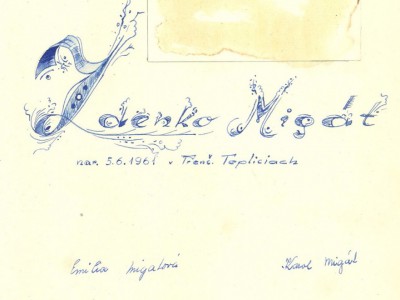 Zdenko Migát
nar. 5.6.1961 v Trenč. Tepliciach
Emília Migatová Karol Migát